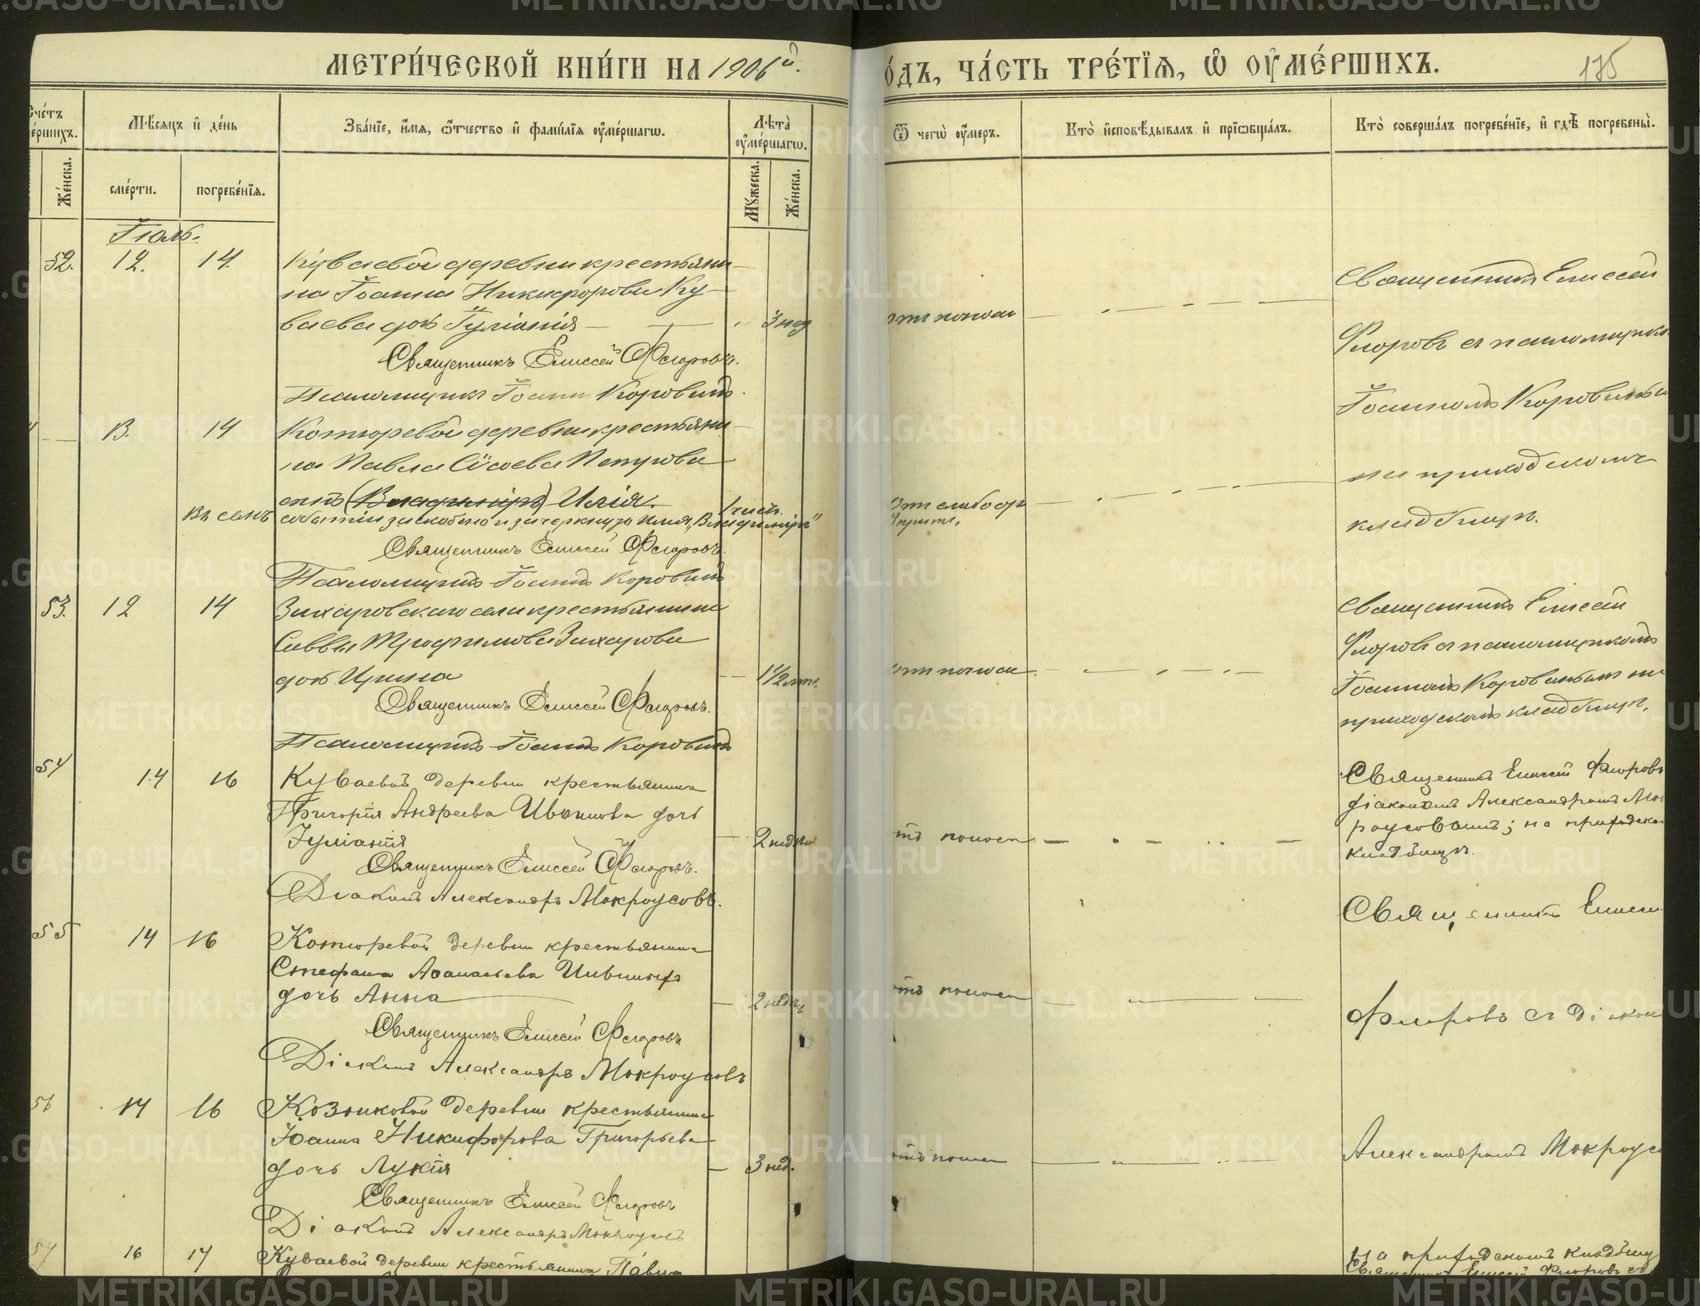 МЕТРИ́ЧЕСКОЙ КНИ́ГИ НА 1906й.
О́ДЪ, ЧА́СТЬ ТРЕ́ТІѦ, Ѽ ОУ҆МЕ́РШИХЪ.
175
Счéтъ
éршихъ.
Мѣ́сяцъ и҆ де́нь
Зва́нїе, и҆́мя, ѻ҆́тчество и҆ фами́лїя оу҆ме́ршагѡ.
Лѣ́та̀
оу҆ме́ршагѡ.
Ѿ чегѡ̀ оу҆́меръ.
Кто̀ и҆сповѣ́дывалъ и҆ прїѡбща́лъ.
Кто̀ соверша́лъ погребе́нїе, и҆ гдѣ̀ погребены̀.
Же́нска.
сме́рти.
погребе́нїя.
Мꙋ́жеска.
Же́нска.
Іюль.
52. 12. 14. Куваевой деревни крестьяни-
на Іоанна Никифорова Ку-
ваева дочь Іуліанія 3 нед
Священникъ Елиссей Флоровъ.
Псаломщикъ Іоаннъ Коровинъ.
отъ поноса
Священникъ Елисей
Флоровъ съ псаломщикомъ
Іоанномъ Коровинымъ
на приходскомъ
кладбищѣ.
13. 14 Котюревой деревни крестьяни-
на Павла Сысоева Петрова
сынъ (Владиміръ) Илія.
Въ семъ событіи за скобкою и зачеркнуто имя „Владиміръ"
Священникъ Елиссей Флоровъ.
Псаломщикъ Іоаннъ Коровинъ
отъ слабости
53. 12 14 Захаровскаго села крестьянина
Саввы Трофимова Захарова
дочь Ирина 1½ лѣт.
Священникъ Елиссей Флоровъ.
Псаломщикъ Іоаннъ Коровинъ
отъ поноса
Священникъ Елисей
Флоровъ съ псаломщикомъ
Іоанномъ Коровинымъ на
приходскомъ кладбищѣ.
54 14 16 Куваевой деревни крестьянина
Григорія Андреева Ивонина дочь
Іуліанія 2 недѣли
Священникъ Елиссей Флоровъ.
Діаконъ Александръ Мокроусовъ.
отъ поноса
Священникъ Елисей Флоровъ
діакономъ Александромъ Мок
роусовымъ; на приходском
кладбищѣ.
55 14 16 Котюревой деревни крестьянина
Стефана Аѳанасьева
дочь Анна 2 недѣл
Священникъ Елиссей Флоровъ
Діаконъ Александръ Мокроусовъ
отъ поноса
Священникъ Елисей
Флоровъ съ Діакон
56 14 16 Козонковой деревни крестьянина
Іоанна Никифорова Григорьева
дочь Лукія 3 нед.
Священникъ Елиссей Флоровъ
Діаконъ Александръ Мокроусовъ
отъ поноса
Александромъ Мокроусо
на приходскомъ кладбищѣ
57 16 17 Куваевой деревни крестьянина Павла
Священникъ Елисей Флоровъ съ